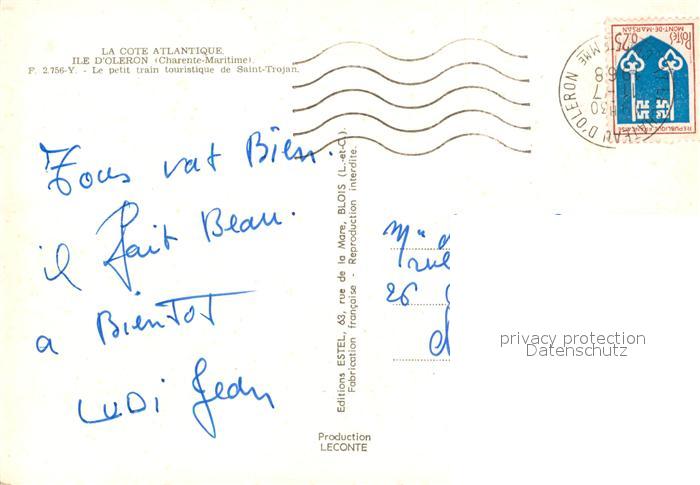 LA COTE ATLANTIQUE.
ILE D'OLERON (Charente-Maritime).
F. 2.756-Y. - Le petit train touristique de Saint-Trojan.
Tous vat Bien.
il fait Beau.
a BienTOT
LUDI Jean
Editions ESTEL, 63, rue de la Mare, BLOIS (L.-et-C.).
Fabrication française - Reproduction interdite.
Production
LECONTE
rue
26
privacy protection
Datenschutz
Postes
0,25
MONT-DE-MARSAN
REPUBLIQUE FRANÇAISE
EAU D'OLERON